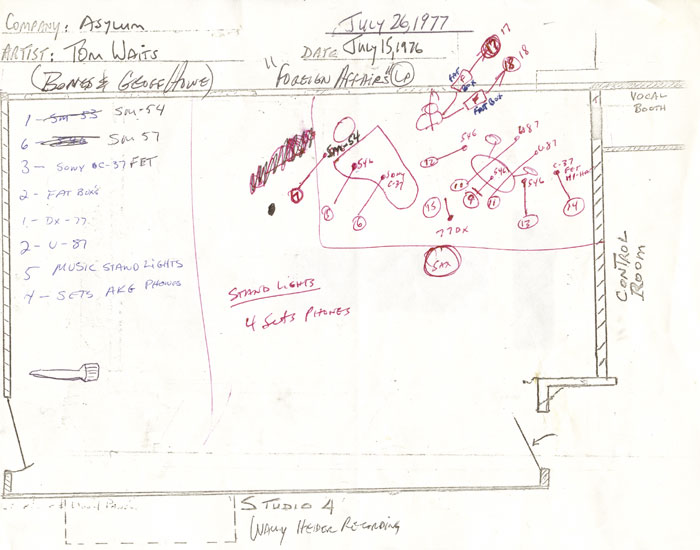 COMPANY: ASYLUM
JULY 26, 1977
ARTIST: TOM WAITS
DATE JULY 15, 1976
(BONES & GEOFF HOWE)
"FOREIGN AFFAIRS" LP
17
17
18
18
FAT BOX
FAT BOX
VOCAL BOOTH
1 - SM-53 SM-54
6 SM 57
3 - SONY C-37 FET
2 - FAT BOX'S
1 - DX-77
2 - U-87
5 MUSIC STAND LIGHTS
4 - SETS AKG PHONES
SM-54
7
546
SONY C-37
8
6
546
U87
U-87
12
10
546
9
11
546
C-37 FET HI-HAT
13
14
15
77DX
SAX
STAND LIGHTS
4 SETS PHONES
CONTROL ROOM
STUDIO 4
WALLY HEIDER RECORDING